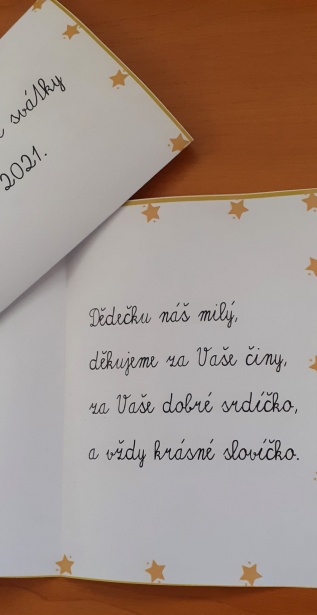 svátky
2021.
Dědečku náš milý,
děkujeme za Vaše činy,
za Vaše dobré srdíčko,
a vždy krásné slovíčko.